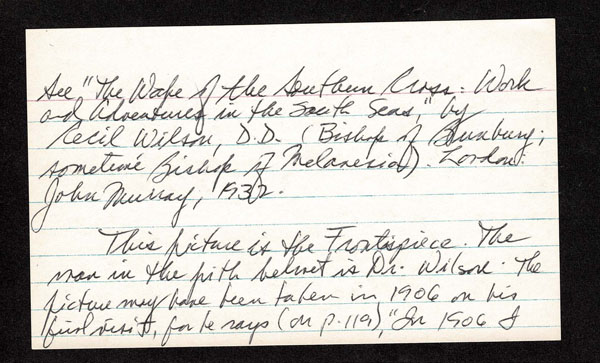 See "The Wake of the Southern Cross: Work
and Adventures in the South Seas," by
Cecil Wilson, D.D. (Bishop of Bunbury;
sometime Bishop of Melanesia). London:
John Murray, 1932.
This picture is the Frontispiece. The
man in the pith helmet is Dr. Wilson. The
picture may have been taken in 1906 on his
first visit, for he says (on p. 119), "In 1906 I